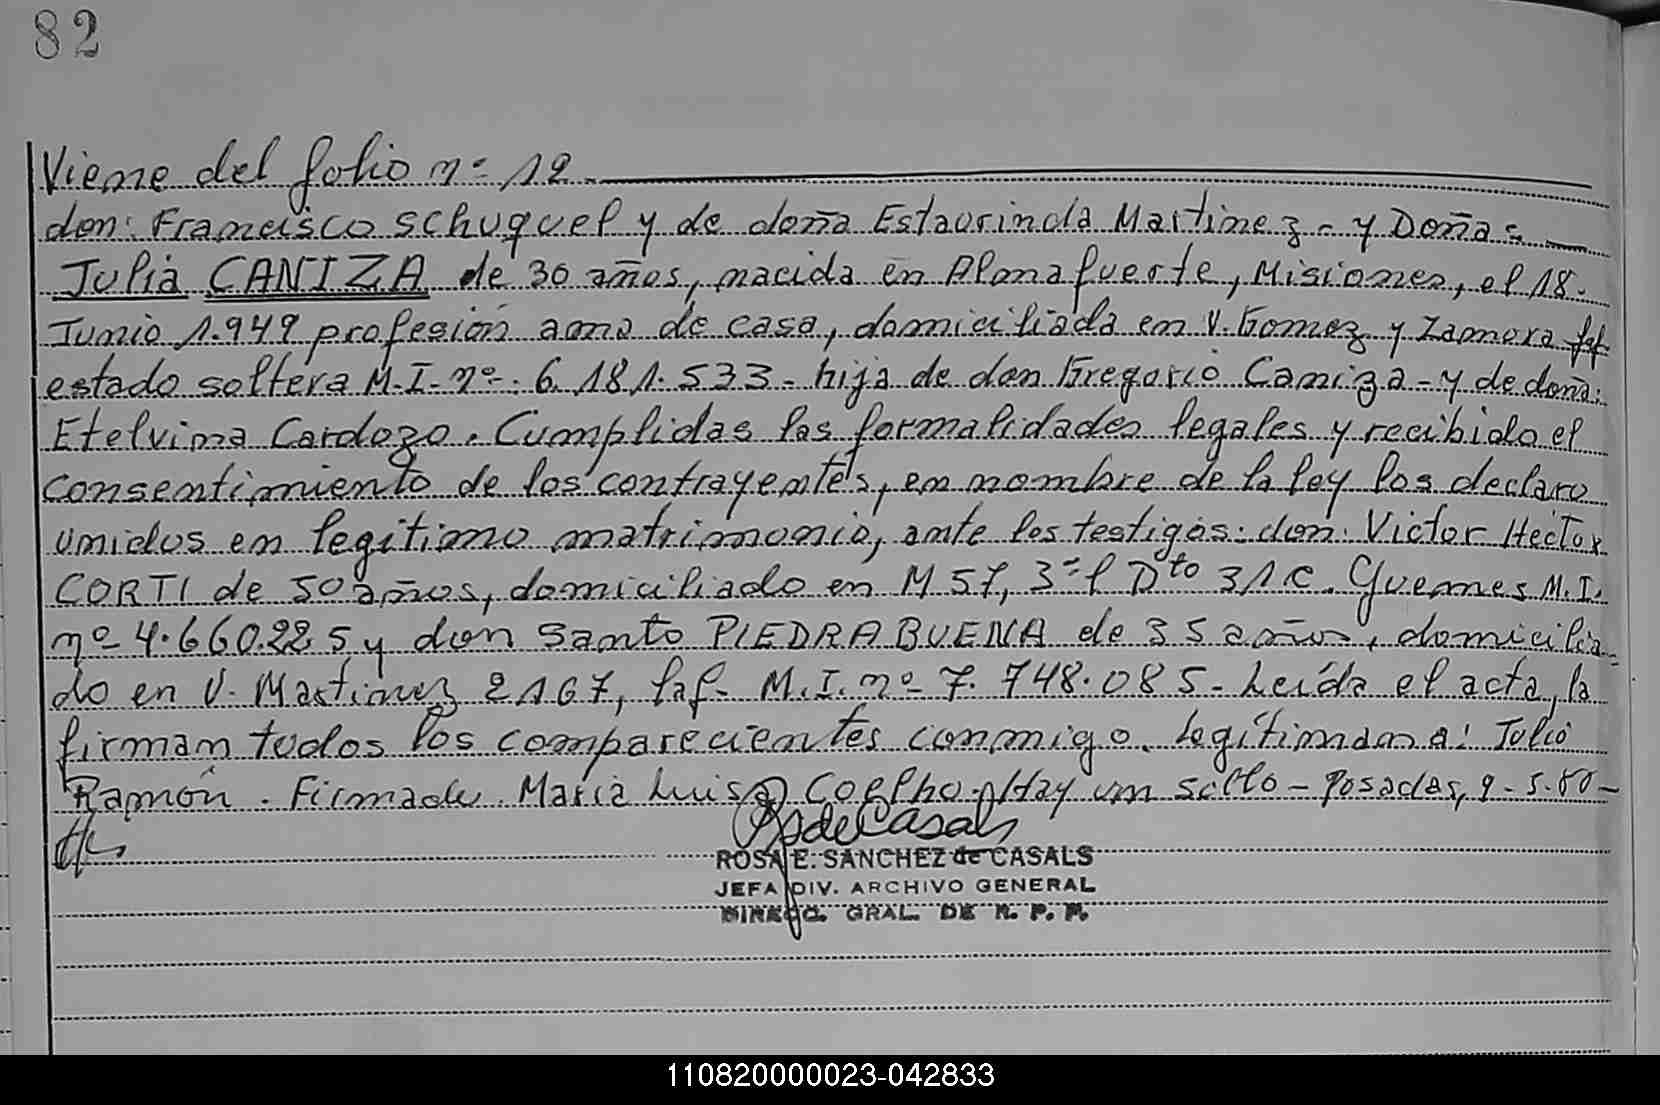 82
Viene del folio nº 12.
don: Francisco Schuquel y de doña Estaurinda Martinez - y Doña:
Julia CANIZA de 30 años, nacida en Almafuerte, Misiones, el 18.
Junio 1.949 profesión ama de casa, domiciliada en V. Gomez y Zamora
estado soltera M.I. nº. 6.181.533 - hija de don Gregorio Caniza - y de doña:
Etelvina Cardozo. Cumplidas las formalidades legales y recibido el
consentimiento de los contrayentes, en nombre de la ley los declaro
unidos en legítimo matrimonio, ante los testigos: don: Victor Hector
CORTI de 50 años, domiciliado en M 57, 3º P Dto 31 C. Guemes M.I.
nº 4.660.225 y don Santo PIEDRABUENA de 35 años, domicilia-
do en V. Martinez 2167, M.I. nº 7.748.085 - Leída el acta, la
firman todos los comparecientes conmigo. Legítiman a: Julio
Ramón. Firmado. Maria Luisa Coelho. Hay un sello - Posadas, 9-5-80-
RS de Casals
ROSA E. SANCHEZ de CASALS
JEFA DIV. ARCHIVO GENERAL
DIRECC. GRAL. DE R. P. P.
110820000023-042833